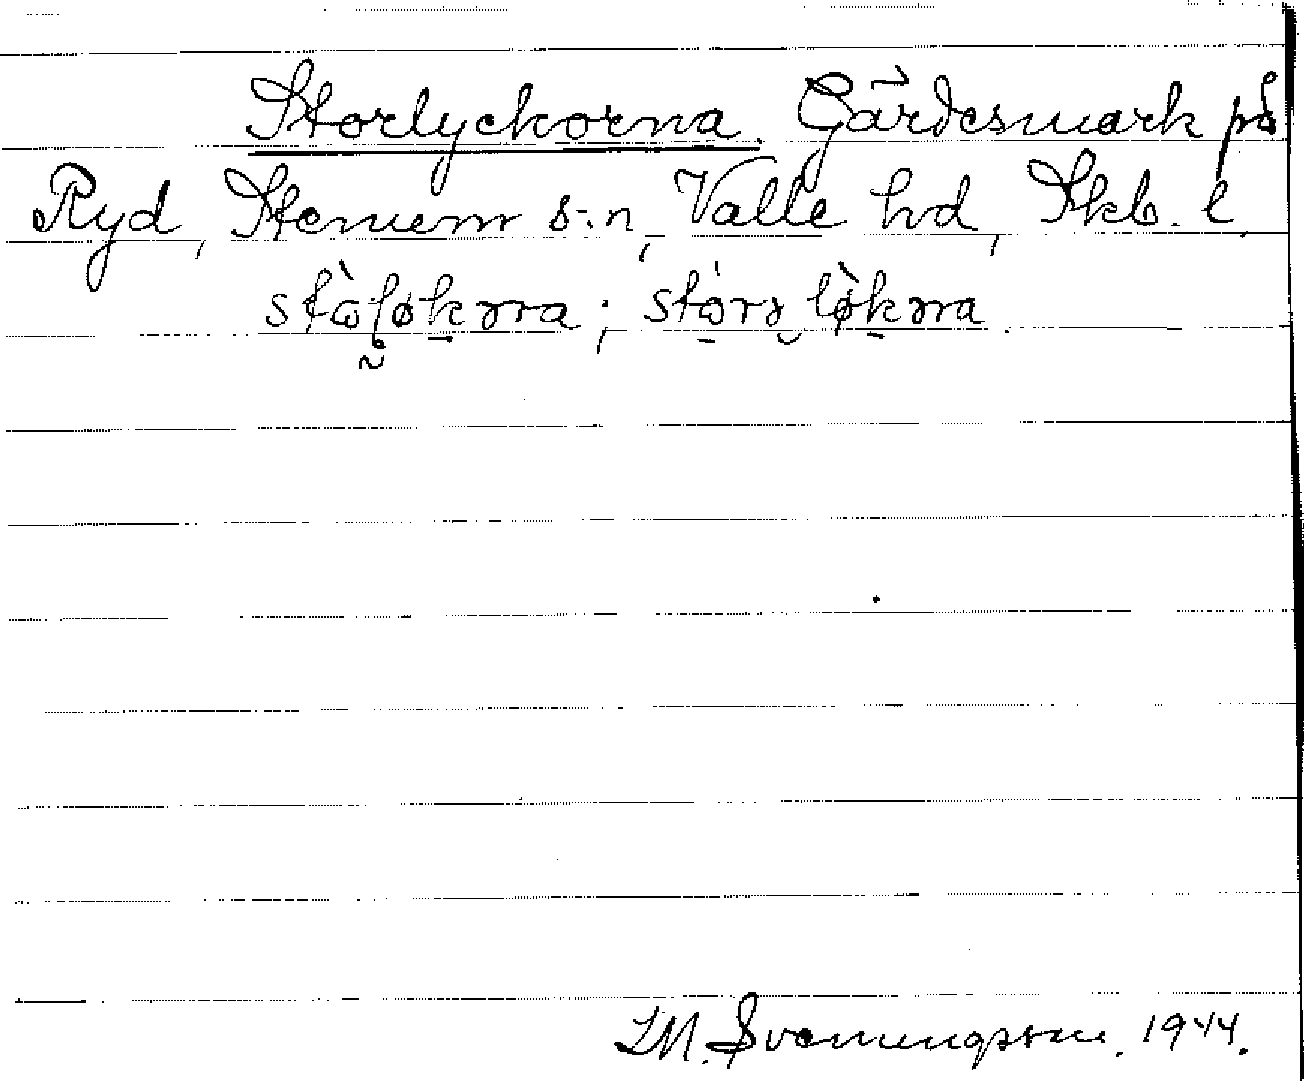 Storlyckorna. Gärdesmark på
Ryd, Stenum s:n, Valle hd, Skb. l.
stòløkɔrra; stòrs lø̀kɔrra
I.M. Svenningsson. 1944.